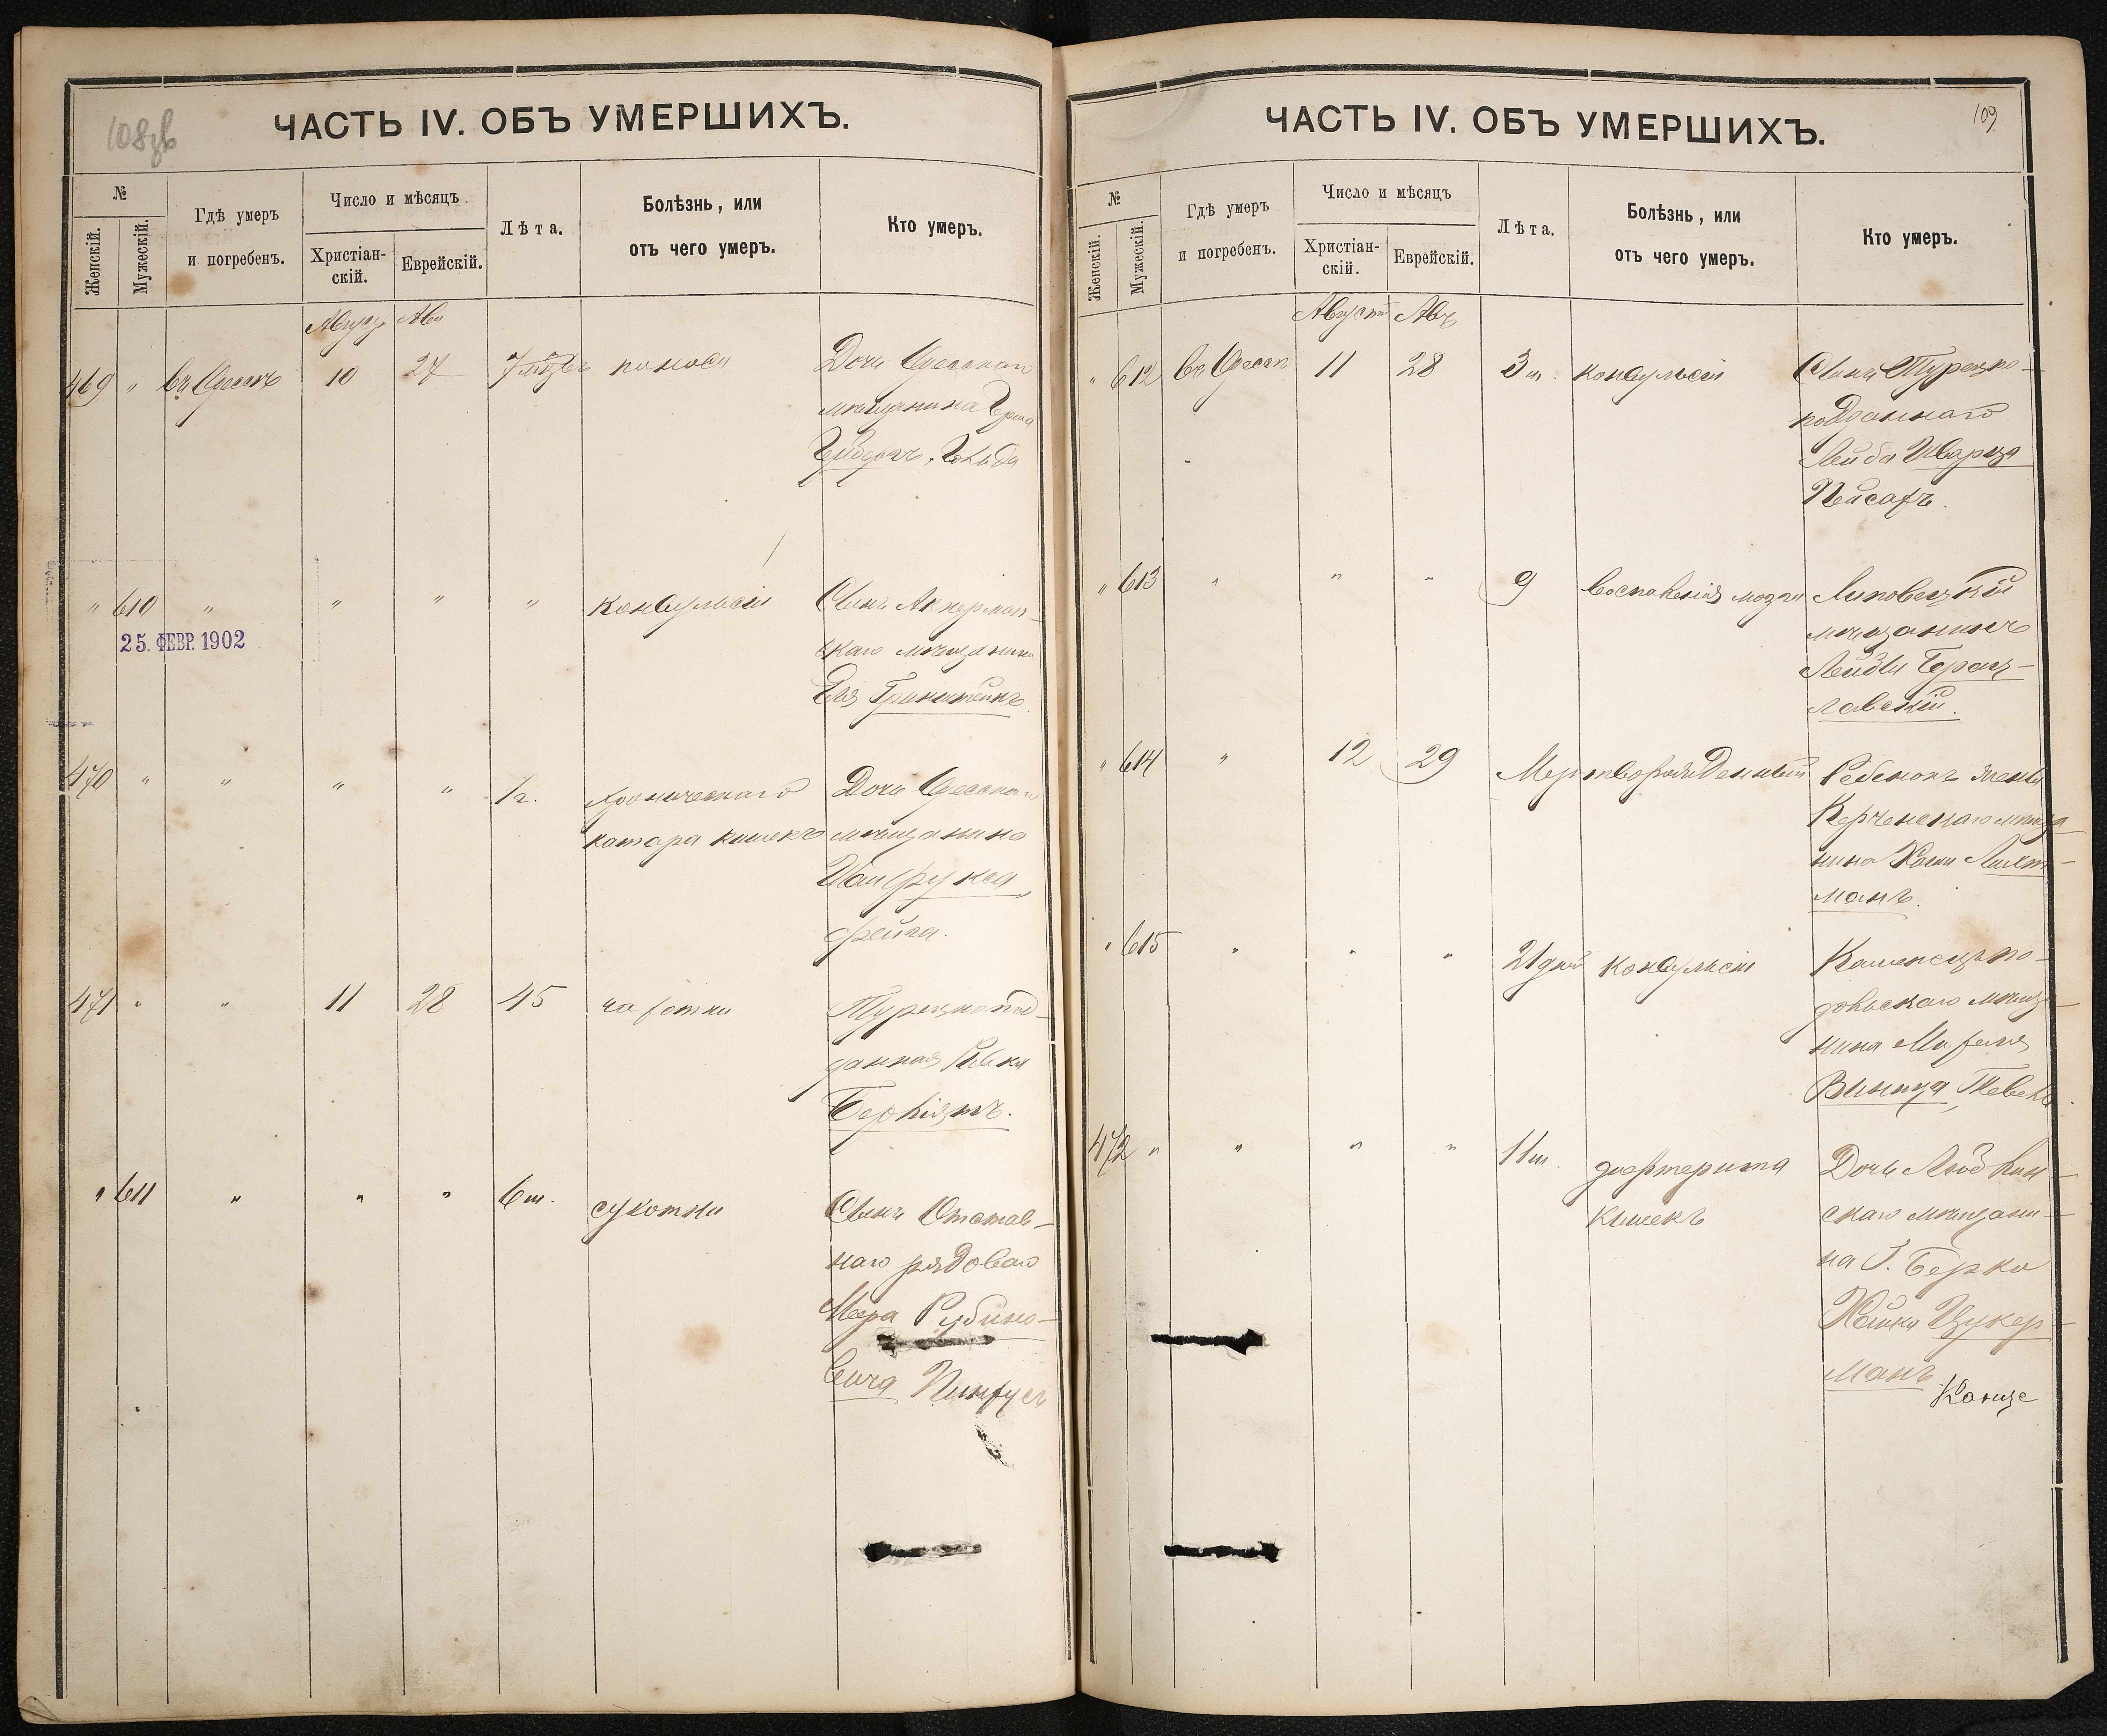 108 об
ЧАСТЬ IV. ОБЪ УМЕРШИХЪ.
№
Женскій.
Мужескій.
Гдѣ умеръ
и погребенъ.
Число и мѣсяцъ
Христіан-
скій.
Еврейскій.
Лѣта.
Болѣзнь, или
отъ чего умеръ.
Кто умеръ.
Августъ Авъ
469 " въ Одессѣ 10 27 7 мѣсць поноса Дочь Одесскаго
мѣщанина
" 610 " " " " конвульсіи Сынъ Аккерман-
скаго мѣщанина
Гринштейнъ
25. ФЕВР. 1902
470 " " " " 1 г. хроническаго Дочь Одесскаго
катара кишекъ мѣщанина
Фейга.
471 " " 11 28 45 чахотки Турецкопод-
данная Ривка
" 611 " " " 6 м. сухотки Сынъ Отстав-
наго рядоваго
Меера Рубино-
вича Пинхусъ
109
ЧАСТЬ IV. ОБЪ УМЕРШИХЪ.
№
Женскій.
Мужескій.
Гдѣ умеръ
и погребенъ.
Число и мѣсяцъ
Христіан-
скій.
Еврейскій.
Лѣта.
Болѣзнь, или
отъ чего умеръ.
Кто умеръ.
Августъ Авъ
" 612 Въ Одессѣ 11 28 3 м. конвульсіи Сынъ Турецко-
подданнаго
Лейба Шварца
Пейсахъ.
" 613 " " " 9 воспаленія мозга Липовецкій
мѣщанинъ
Лейзи Борац-
лавскій.
" 614 " 12 29 Мертворожденный Ребенокъ жены
Керченскаго мѣща-
нина Хаим Лихт-
манъ.
" 615 " " " 21 дней конвульсіи Каменецъ по-
дольскаго мѣща-
нина Михеля
Винница, Тевель.
472 " " " " 11 м. дифтерита Дочь
кишекъ скаго мѣщани-
на Г. Берко
Цукер-
манъ